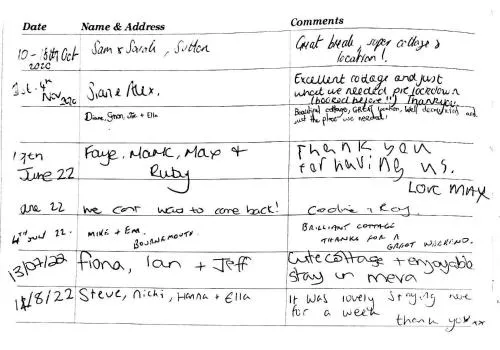 Date Name & Address Comments
10-18th Oct 2020 Sam & Sarah, Sutton Great break, super cottage & location!
Nov 2020 Excellent cottage and just what we needed pre lockdown (booked before!!) Thankyou.
Beautiful cottage, GREAT location, well decorated and just the place we needed!
June 22 Faye, Mark, Max + Ruby Thank you for having us.
Love MAX
June 22 We can't wait to come back!
4TH JULY 22. MIKE + EM. BOURNEMOUTH. BRILLIANT COTTAGE THANKS FOR A GREAT WEEKEND.
13/07/22 Fiona, Ian + Jeff Cute cottage + enjoyable stay in meva
/8/22 Steve, Nicki, Hanna + Ella It was lovely staying here for a week thank you xx